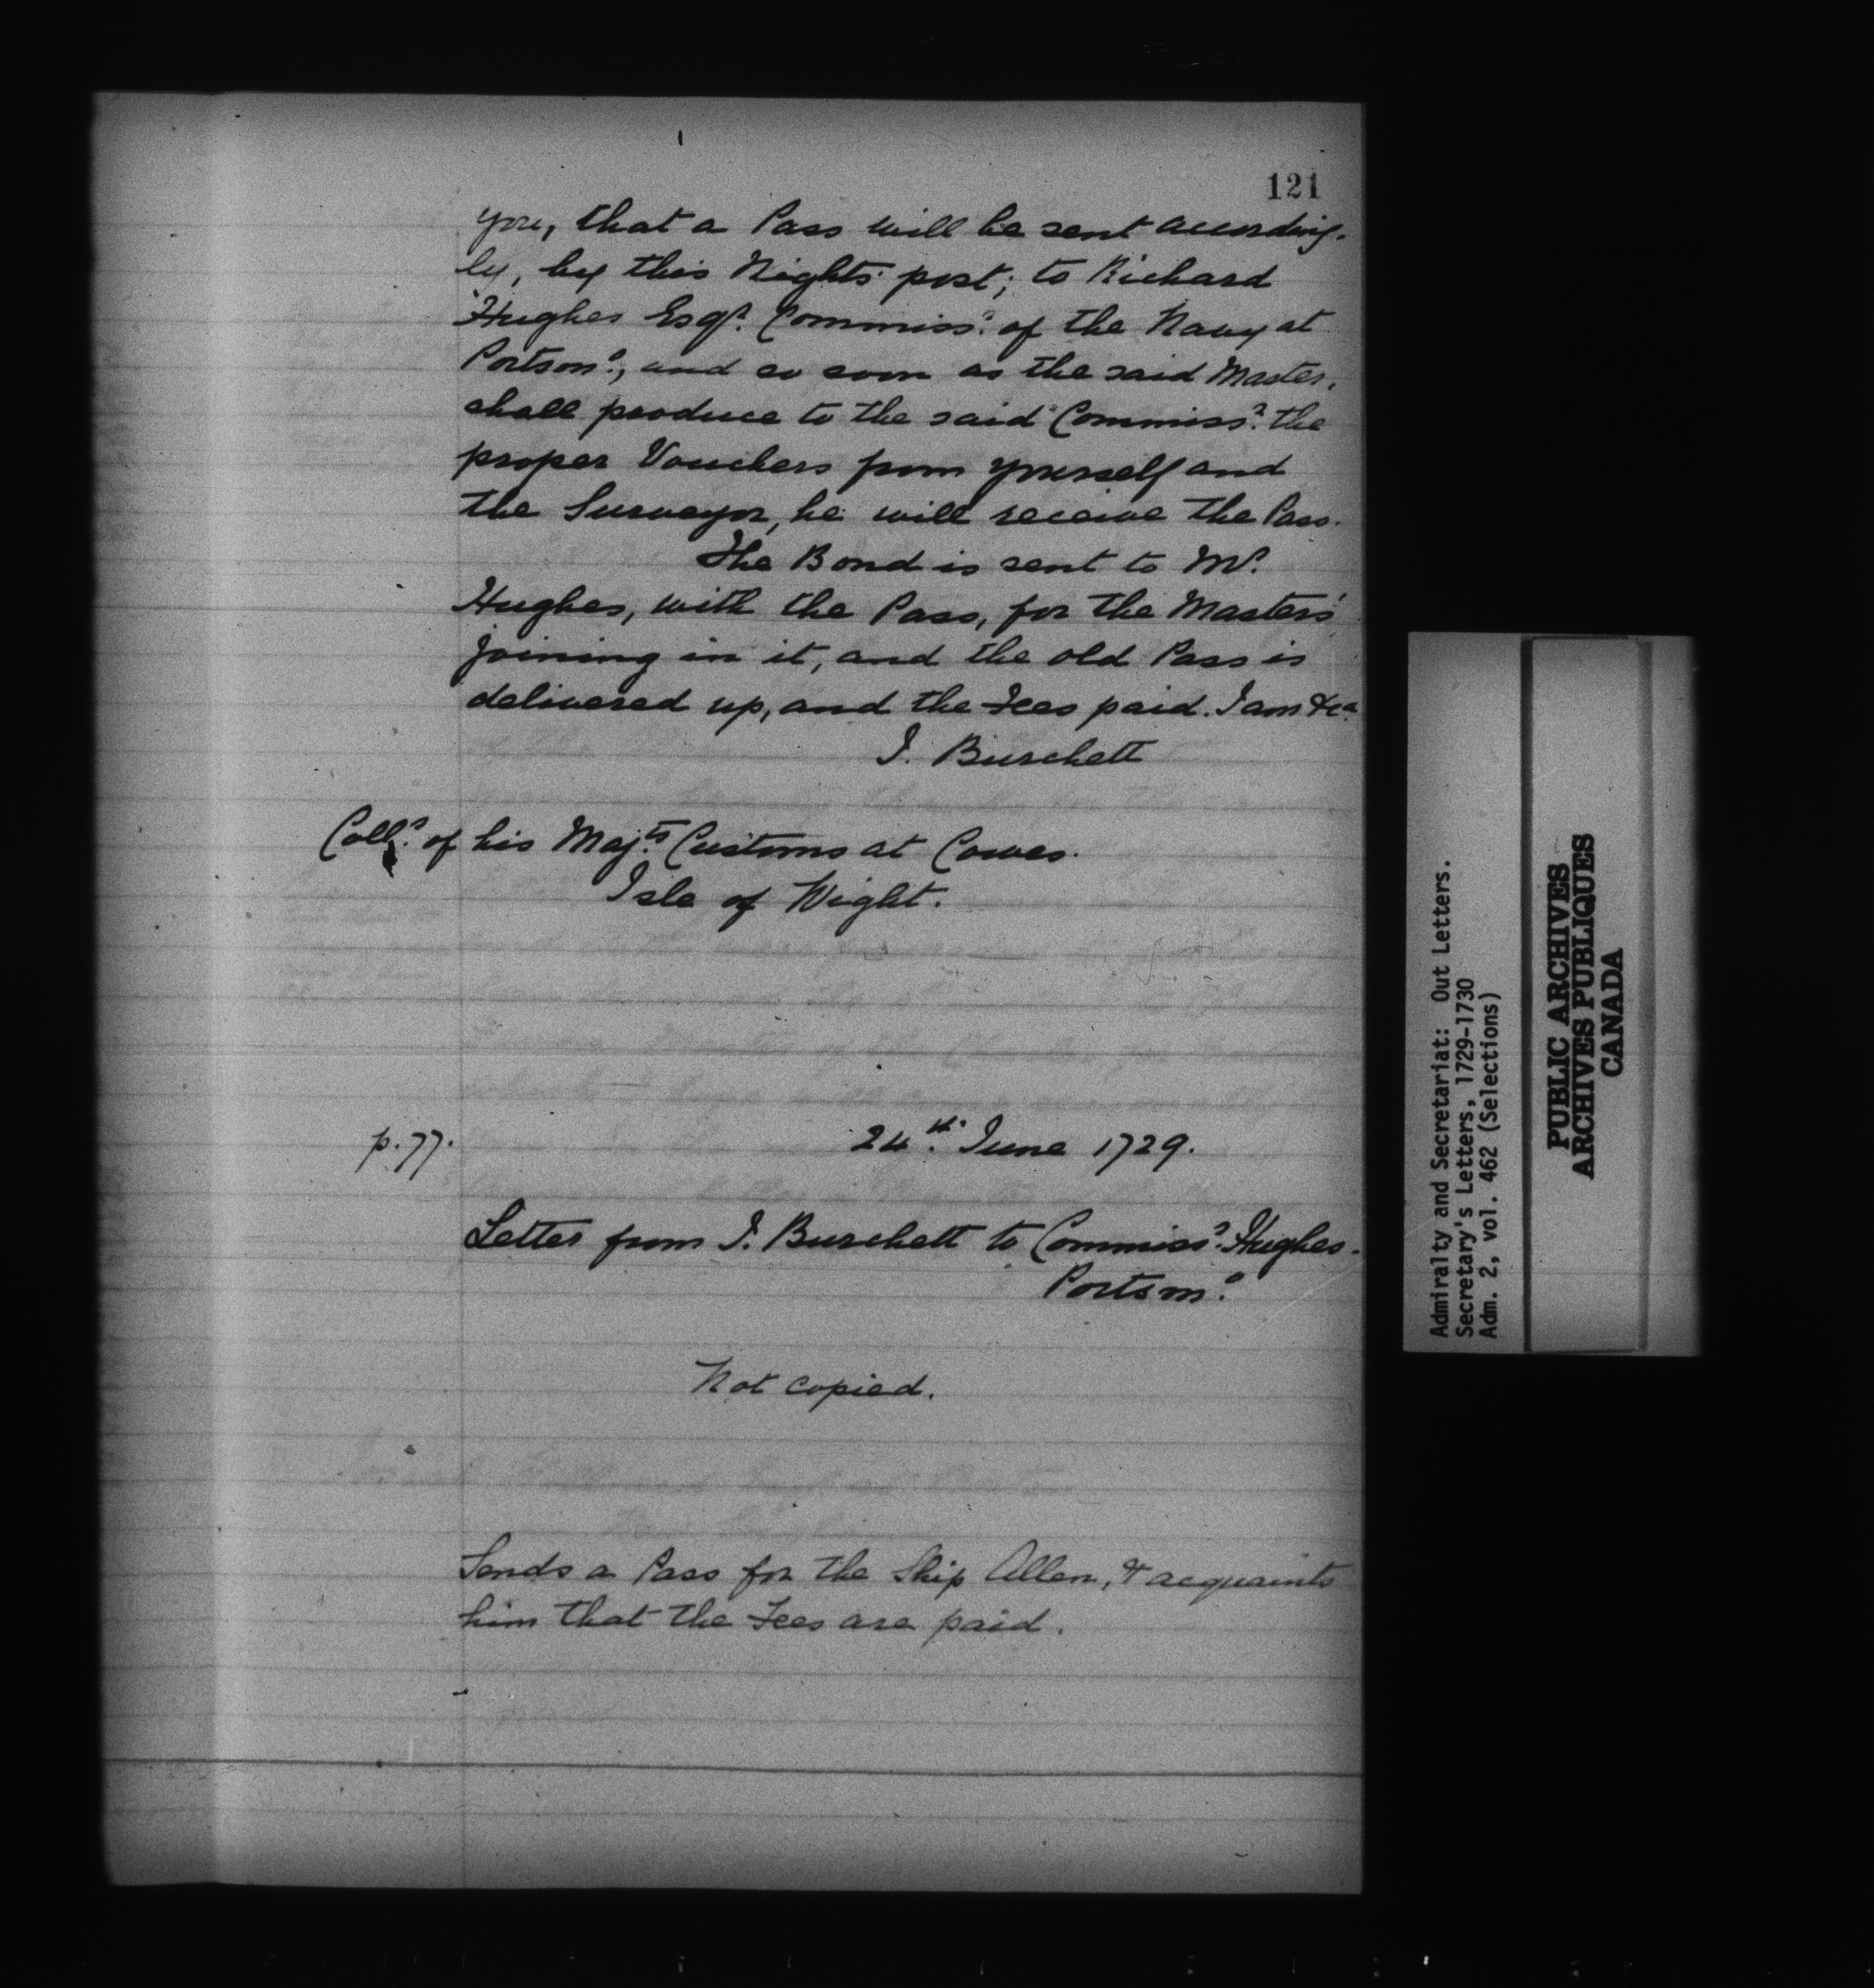 121
you, that a Pass will be sent according-
ly, by this Nights post; to Richard
Hughes Esqr. Commissr. of the Navy at
Portsmo., and so soon as the said Master,
shall produce to the said Commissr. the
proper Vouchers from yourself and
the Surveyor, he will receive the Pass.
The Bond is sent to Mr.
Hughes, with the Pass, for the Masters'
joining in it, and the old Pass is
delivered up, and the Fees paid. I am &ca
J. Burchett
Collr. of his Majts. Customs at Cowes.
Isle of Wight.
p. 77.
24th. June 1729.
Letter from J. Burchett to Commissr. Hughes.
Portsmo.
Not copied.
Sends a Pass for the Ship Allen, & acquaints
him that the Fees are paid.
Admiralty and Secretariat: Out Letters.
Secretary's Letters, 1729-1730
Adm. 2, vol. 462 (Selections)
PUBLIC ARCHIVES
ARCHIVES PUBLIQUES
CANADA